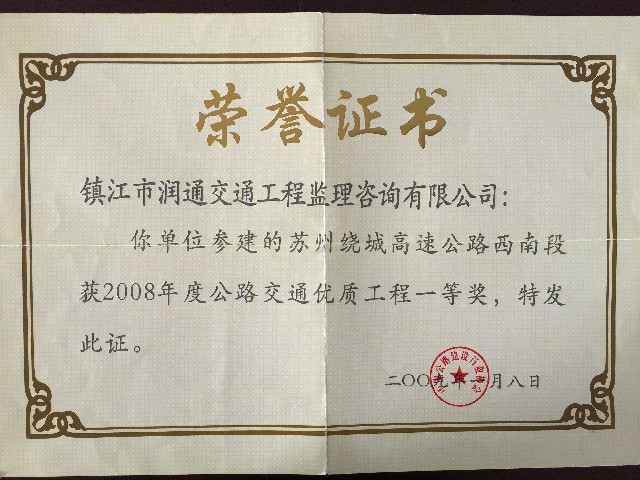 荣誉证书
镇江市润通交通工程监理咨询有限公司：
你单位参建的苏州绕城高速公路西南段
获2008年度公路交通优质工程一等奖，特发
此证。
二〇〇九年一月八日
公路建设行业协会